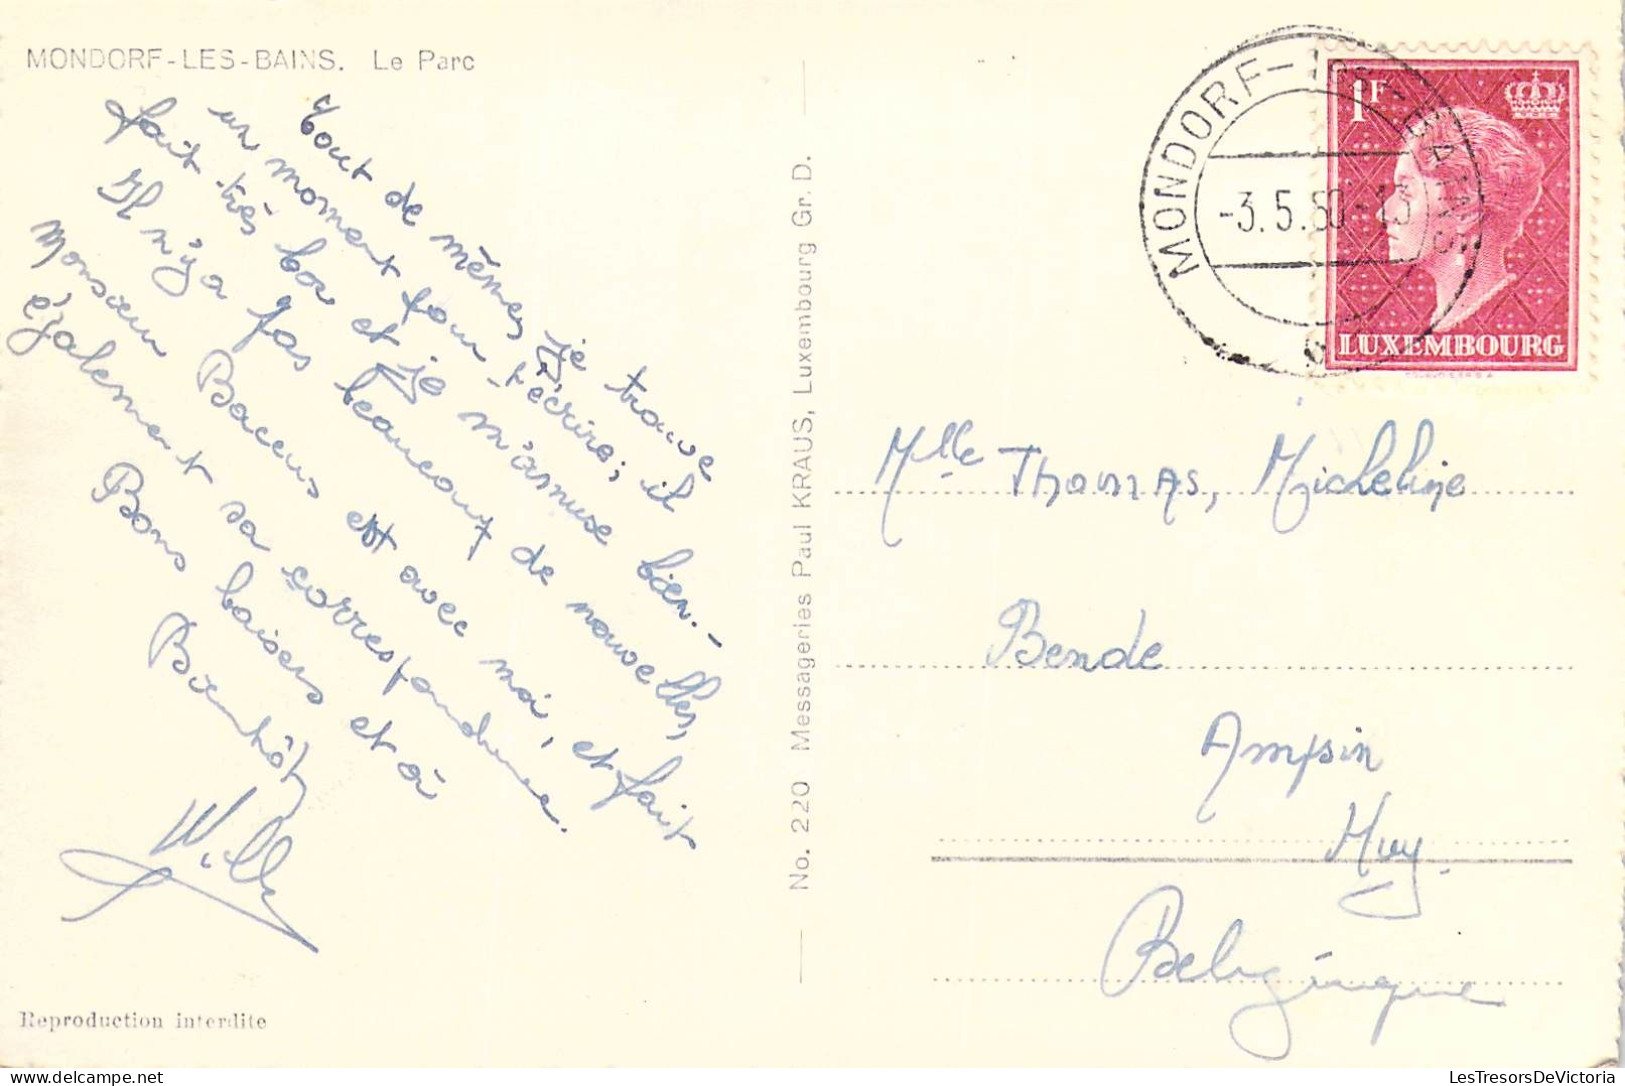 MONDORF-LES-BAINS. Le Parc
Tout de même, je trouve
un moment pour t'écrire; il
fait très bon et je m'amuse bien.-
Il n'y a pas beaucoup de nouvelles,
Monsieur Baccus est avec moi, et fait
également sa correspondance.
Bons baisers et à
Bientôt
Willy
Reproduction interdite
No. 220 Messageries Paul KRAUS, Luxembourg Gr. D.
MONDORF-les-BAINS
-3.5.60-13
1F
LUXEMBOURG
Mlle Thomas, Micheline
Bende
Ampsin
Huy
Belgique
LesTresorsDeVictoria